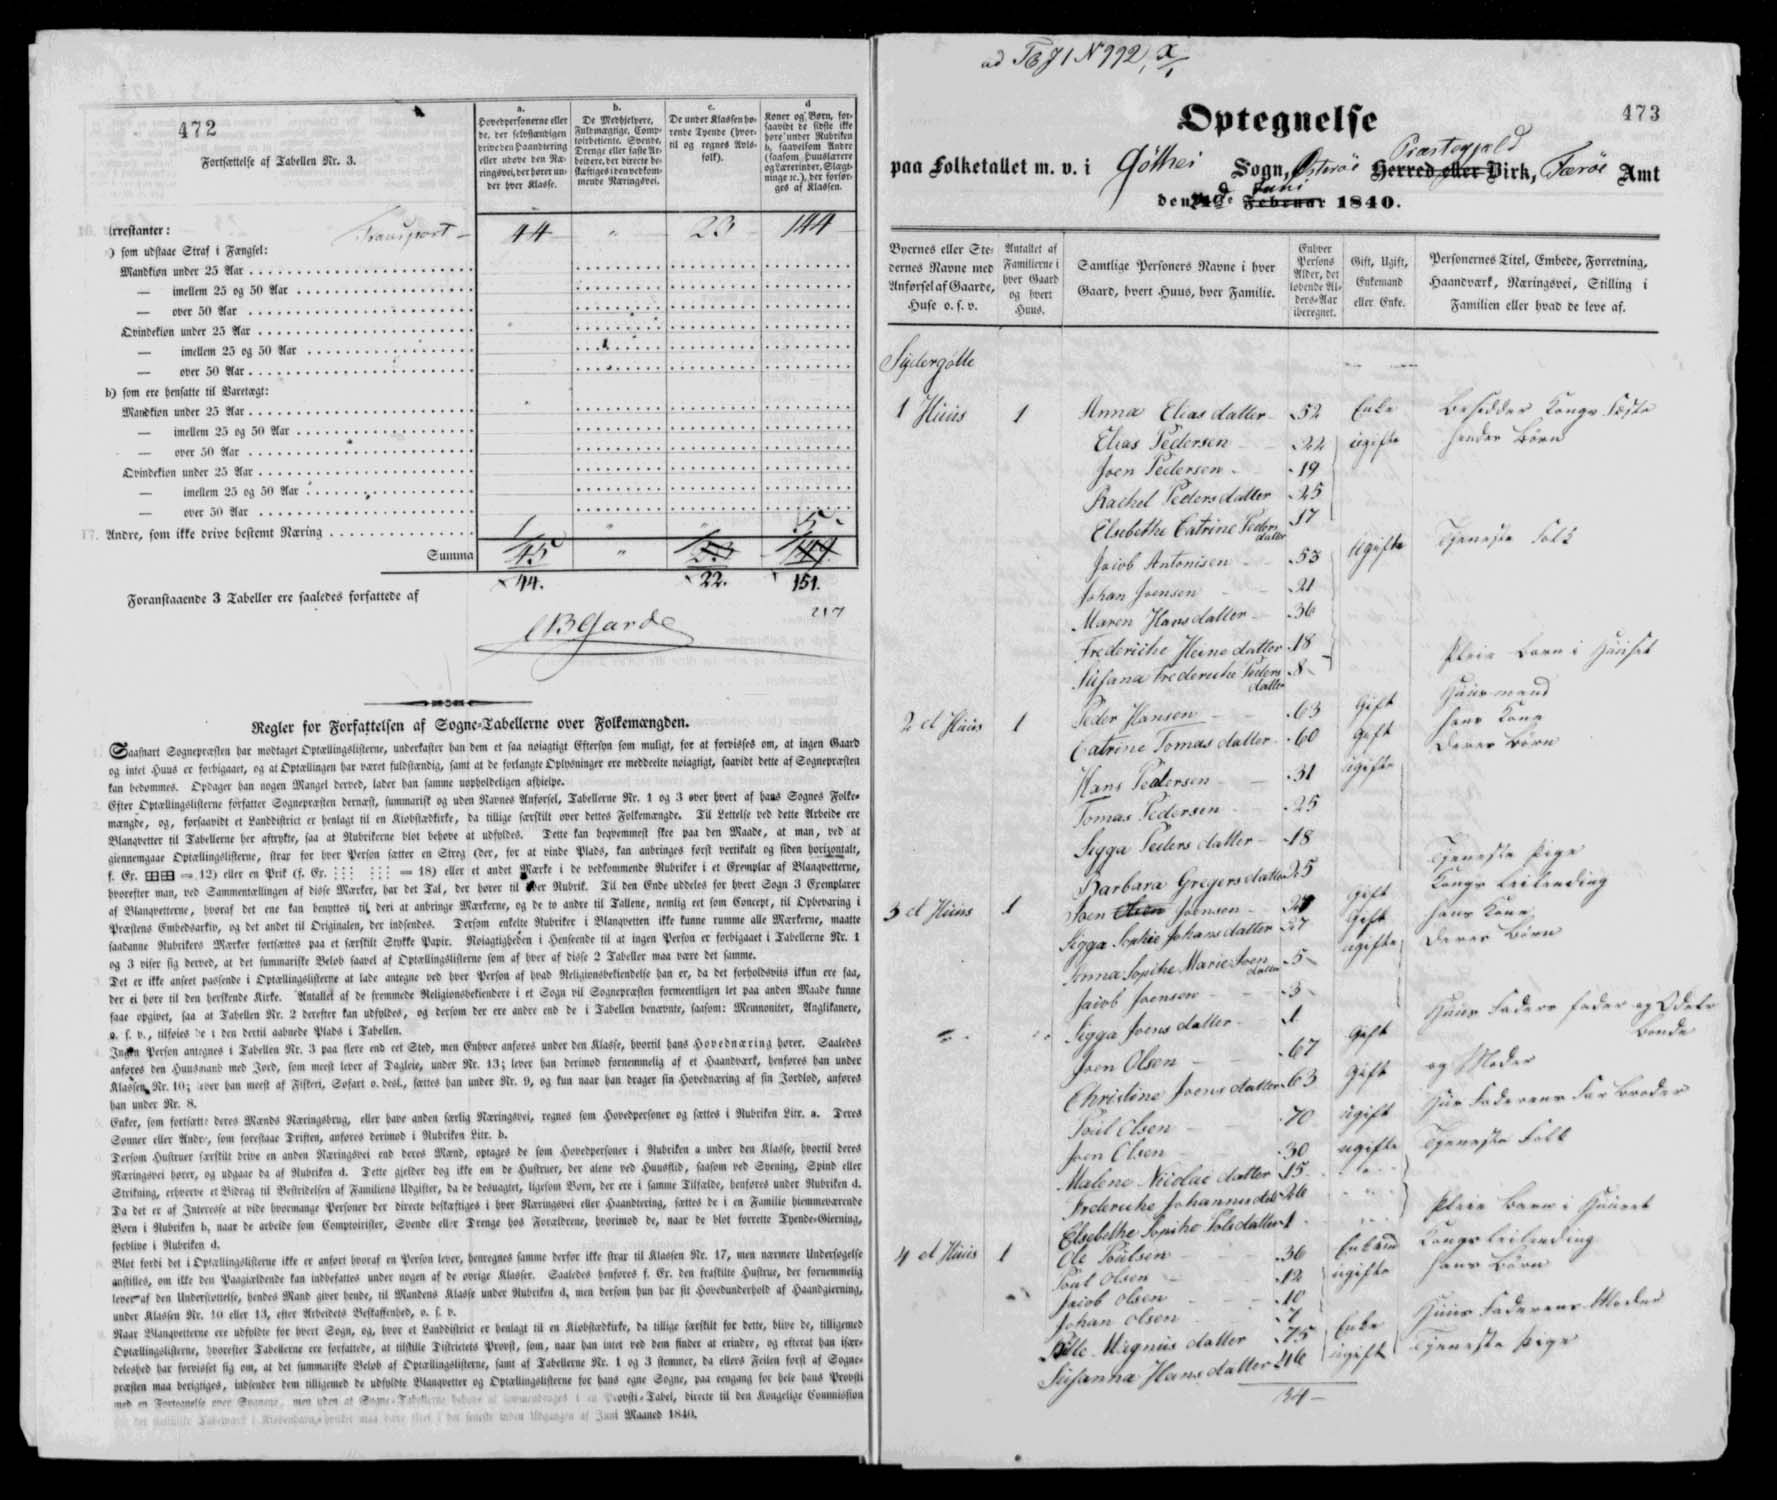 472
Fortsættelse af Tabellen Nr. 3.
a. Hovedpersonerne eller de, der selvstændigen drive den Haandtering eller udøve den Næringsvei, der hører under hver Klasse.
b. De Medhjelpere, Fuldmægtige, Comptoirbetiente, Svende, Drenge eller faste Arbeidere, der directe beskæftiges i den vedkommende Næringsvei.
c. De under Klassen hørende Tyende (hvortil og regnes Avlsfolk).
d Koner og Børn, forsaavidt de sidste ikke høre under Rubriken b, saavelsom Andre (saasom Huuslærere og Lærerinder, Slægtninge ꝛc.), der forsørges af Klassen.
Transport 44 " 23 144
Arrestanter:
a) som udstaae Straf i Fængsel:
Mandkiøn under 25 Aar
— imellem 25 og 50 Aar
— over 50 Aar
Qvindekiøn under 25 Aar
— imellem 25 og 50 Aar
— over 50 Aar
b) som ere hensatte til Varetægt:
Mandkiøn under 25 Aar
— imellem 25 og 50 Aar
— over 50 Aar
Qvindekiøn under 25 Aar
— imellem 25 og 50 Aar
— over 50 Aar
17. Andre, som ikke drive bestemt Næring 1 " " 5
Summa 45 " 23 149
44. 22. 151.
217
Foranstaaende 3 Tabeller ere saaledes forfattede af
CBGarde
Regler for Forfattelsen af Sogne-Tabellerne over Folkemængden.
Saasnart Sognepræsten har modtaget Optællingslisterne, underkaster han dem et saa nøiagtigt Eftersyn som muligt, for at forvisses om, at ingen Gaard
og intet Huus er forbigaaet, og at Optællingen har været fuldstændig, samt at de forlangte Oplysninger ere meddeelte nøiagtigt, saavidt dette af Sognepræsten
kan bedømmes. Opdager han nogen Mangel derved, lader han samme uopholdeligen afhielpe.
Efter Optællingslisterne forfatter Sognepræsten dernæst, summarisk og uden Navnes Anførsel, Tabellerne Nr. 1 og 3 over hvert af hans Sognes Folke-
mængde, og, forsaavidt et Landdistrict er henlagt til en Kiøbstædkirke, da tillige særskilt over dettes Folkemængde. Til Lettelse ved dette Arbeide ere
Blanqvetter til Tabellerne her aftrykte, saa at Rubrikerne blot behøve at udfyldes. Dette kan beqvemmest skee paa den Maade, at man, ved at
giennemgaae Optællingslisterne, strax for hver Person sætter en Streg (der, for at vinde Plads, kan anbringes først vertikalt og siden horizontalt,
f. Ex. = 12) eller en Prik (f. Ex. = 18) eller et andet Mærke i de vedkommende Rubriker i et Exemplar af Blanqvetterne,
hvorefter man, ved Sammentællingen af disse Mærker, har det Tal, der hører til hver Rubrik. Til den Ende uddeles for hvert Sogn 3 Exemplarer
af Blanqvetterne, hvoraf det ene kan benyttes til deri at anbringe Mærkerne, og de to andre til Tallene, nemlig eet som Concept, til Opbevaring i
Præstens Embedsarkiv, og det andet til Originalen, der indsendes. Dersom enkelte Rubriker i Blanqvetten ikke kunne rumme alle Mærkerne, maatte
saadanne Rubrikers Mærker fortsættes paa et særskilt Stykke Papir. Nøiagtigheden i Henseende til at ingen Person er forbigaaet i Tabellerne Nr. 1
og 3 viser sig derved, at det summariske Beløb saavel af Optællingslisterne som af hver af disse 2 Tabeller maa være det samme.
Det er ikke anseet passende i Optællingslisterne at lade antegne ved hver Person af hvad Religionsbekiendelse han er, da det forholdsviis ikkun ere faa,
der ei høre til den herskende Kirke. Antallet af de fremmede Religionsbekiendere i et Sogn vil Sognepræsten formeentligen let paa anden Maade kunne
faae opgivet, saa at Tabellen Nr. 2 derefter kan udfyldes, og dersom der ere andre end de i Tabellen benævnte, saasom: Mennoniter, Anglikanere,
o. s. v., tilføies de i den dertil aabnede Plads i Tabellen.
Ingen Person antegnes i Tabellen Nr. 3 paa flere end eet Sted, men Enhver anføres under den Klasse, hvortil hans Hovednæring hører. Saaledes
anføres den Huusmand med Jord, som meest lever af Dagleie, under Nr. 13; lever han derimod fornemmelig af et Haandværk, henføres han under
Klassen Nr. 10; lever han meest af Fiskeri, Søfart o. desl., sættes han under Nr. 9, og kun naar han drager sin Hovednæring af sin Jordlod, anføres
han under Nr. 8.
Enker, som fortsætte deres Mænds Næringsbrug, eller have anden særlig Næringsvei, regnes som Hovedpersoner og sættes i Rubriken Litr. a. Deres
Sønner eller Andre, som forestaae Driften, anføres derimod i Rubriken Litr. b.
Dersom Hustruer særskilt drive en anden Næringsvei end deres Mænd, optages de som Hovedpersoner i Rubriken a under den Klasse, hvortil deres
Næringsvei hører, og udgaae da af Rubriken d. Dette gjelder dog ikke om de Hustruer, der alene ved Huusflid, saasom ved Syening, Spind eller
Strikning, erhverve et Bidrag til Bestridelsen af Familiens Udgifter, da de desuagtet, ligesom Børn, der ere i samme Tilfælde, henføres under Rubriken d.
Da det er af Interesse at vide hvormange Personer der directe beskæftiges i hver Næringsvei eller Haandtering, sættes de i en Familie hiemmeværende
Børn i Rubriken b, naar de arbeide som Comptoirister, Svende eller Drenge hos Forældrene, hvorimod de, naar de blot forrette Tyende-Gierning,
forblive i Rubriken d.
Blot fordi det i Optællingslisterne ikke er anført hvoraf en Person lever, henregnes samme derfor ikke strax til Klassen Nr. 17, men nærmere Undersøgelse
anstilles, om ikke den Paagiældende kan indbefattes under nogen af de øvrige Klasser. Saaledes henføres f. Ex. den fraskilte Hustrue, der fornemmelig
lever af den Understøttelse, hendes Mand giver hende, til Mandens Klasse under Rubriken d, men dersom hun har sit Hovedunderhold af Haandgierning,
under Klassen Nr. 10 eller 13, efter Arbeidets Beskaffenhed, o. s. v.
Naar Blanqvetterne ere udfyldte for hvert Sogn, og, hvor et Landdistrict er henlagt til en Kiøbstædkirke, da tillige særskilt for dette, blive de, tilligemed
Optællingslisterne, hvorefter Tabellerne ere forfattede, at tilstille Districtets Provst, som, naar han intet ved dem finder at erindre, og efterat han især-
deleshed har forvisset sig om, at det summariske Beløb af Optællingslisterne, samt af Tabellerne Nr. 1 og 3 stemmer, da ellers Feilen først af Sogne-
præsten maa berigtiges, indsender dem tilligemed de udfyldte Blanqvetter og Optællingslisterne for hans egne Sogne, paa eengang for hele hans Provsti
med en Fortegnelse over Sognene, men uden at Sogne-Tabellerne behøve at sammendrages i en Provsti-Tabel, directe til den Kongelige Commission
inden Udgangen af Juni Maaned 1840.
473
Optegnelse
paa Folketallet m. v. i Göthei Sogn, Østerøe Præstegjeld Herred eller Birk, Færøe Amt
den Juni Februar 1840.
Byernes eller Stedernes Navne med Anførsel af Gaarde, Huse o. s. v.
Antallet af Familierne i hver Gaard og hvert Huus.
Samtlige Personers Navne i hver Gaard, hvert Huus, hver Familie.
Enhver Persons Alder, det løbende Alders-Aar iberegnet.
Gift, Ugift, Enkemand eller Enke.
Personernes Titel, Embede, Forretning, Haandværk, Næringsvei, Stilling i Familien eller hvad de leve af.
Sydergøtte
1 Huus 1 Anna Eliasdatter 52 Enke Besidder Kongs Fæste
Elias Pedersen 22 ugifte hendes Børn
Joen Pedersen 19
Rachel Pedersdatter 25
Elsebethe Catrine Pedersdatter 17
Jacob Antonisen 53 Ugifte Tjeneste Folk
Johan Joensen 21
Maren Hansdatter 36
Frederiche Heinedatter 18
Susana Frederiche Pedersdatter 8 Pleie barn i Huuset
2 et Huus 1 Peder Hansen 63 Gift Huusmand
Catrine Tomasdatter 60 Gift hans Kone
Hans Pedersen 31 ugifte deres Børn
Tomas Pedersen 25
Sigga Pedersdatter 18
Barbara Gregersdatter 25 Tjeneste Pige
3 et Huus 1 Joen Olsen Joensen 27 Gift Kongs Leilending
Sigga Sophie Johansdatter 27 Gift hans Kone
Anna Sophie Marie Joensdatter 5 ugifte deres Børn
Jacob Joensen 3
Sigga Joensdatter 1
Joen Olsen 67 Gift Huus Faders fader og Odels bonde
Christine Joensdatter 63 Gift og Moder
Poul Olsen 70 ugift Huus Faderens Far Broder
Joen Olsen 30 ugifte Tjeneste Folk
Malene Nicolaidatter 15
Frederiche Johannesdatter 26
Elsebethe Sophie Polsdatter 1 Pleie barn i Huuset
4 et Huus 1 Ole Poulsen 36 Enkem Kongs Leilending
Poul Olsen 12 ugifte hans Børn
Jacob Olsen 10
Johan Olsen 7
Magnusdatter 75 Enke Huus Faderens Moder
Susanna Hansdatter 46 ugift Tjeneste Pige
34